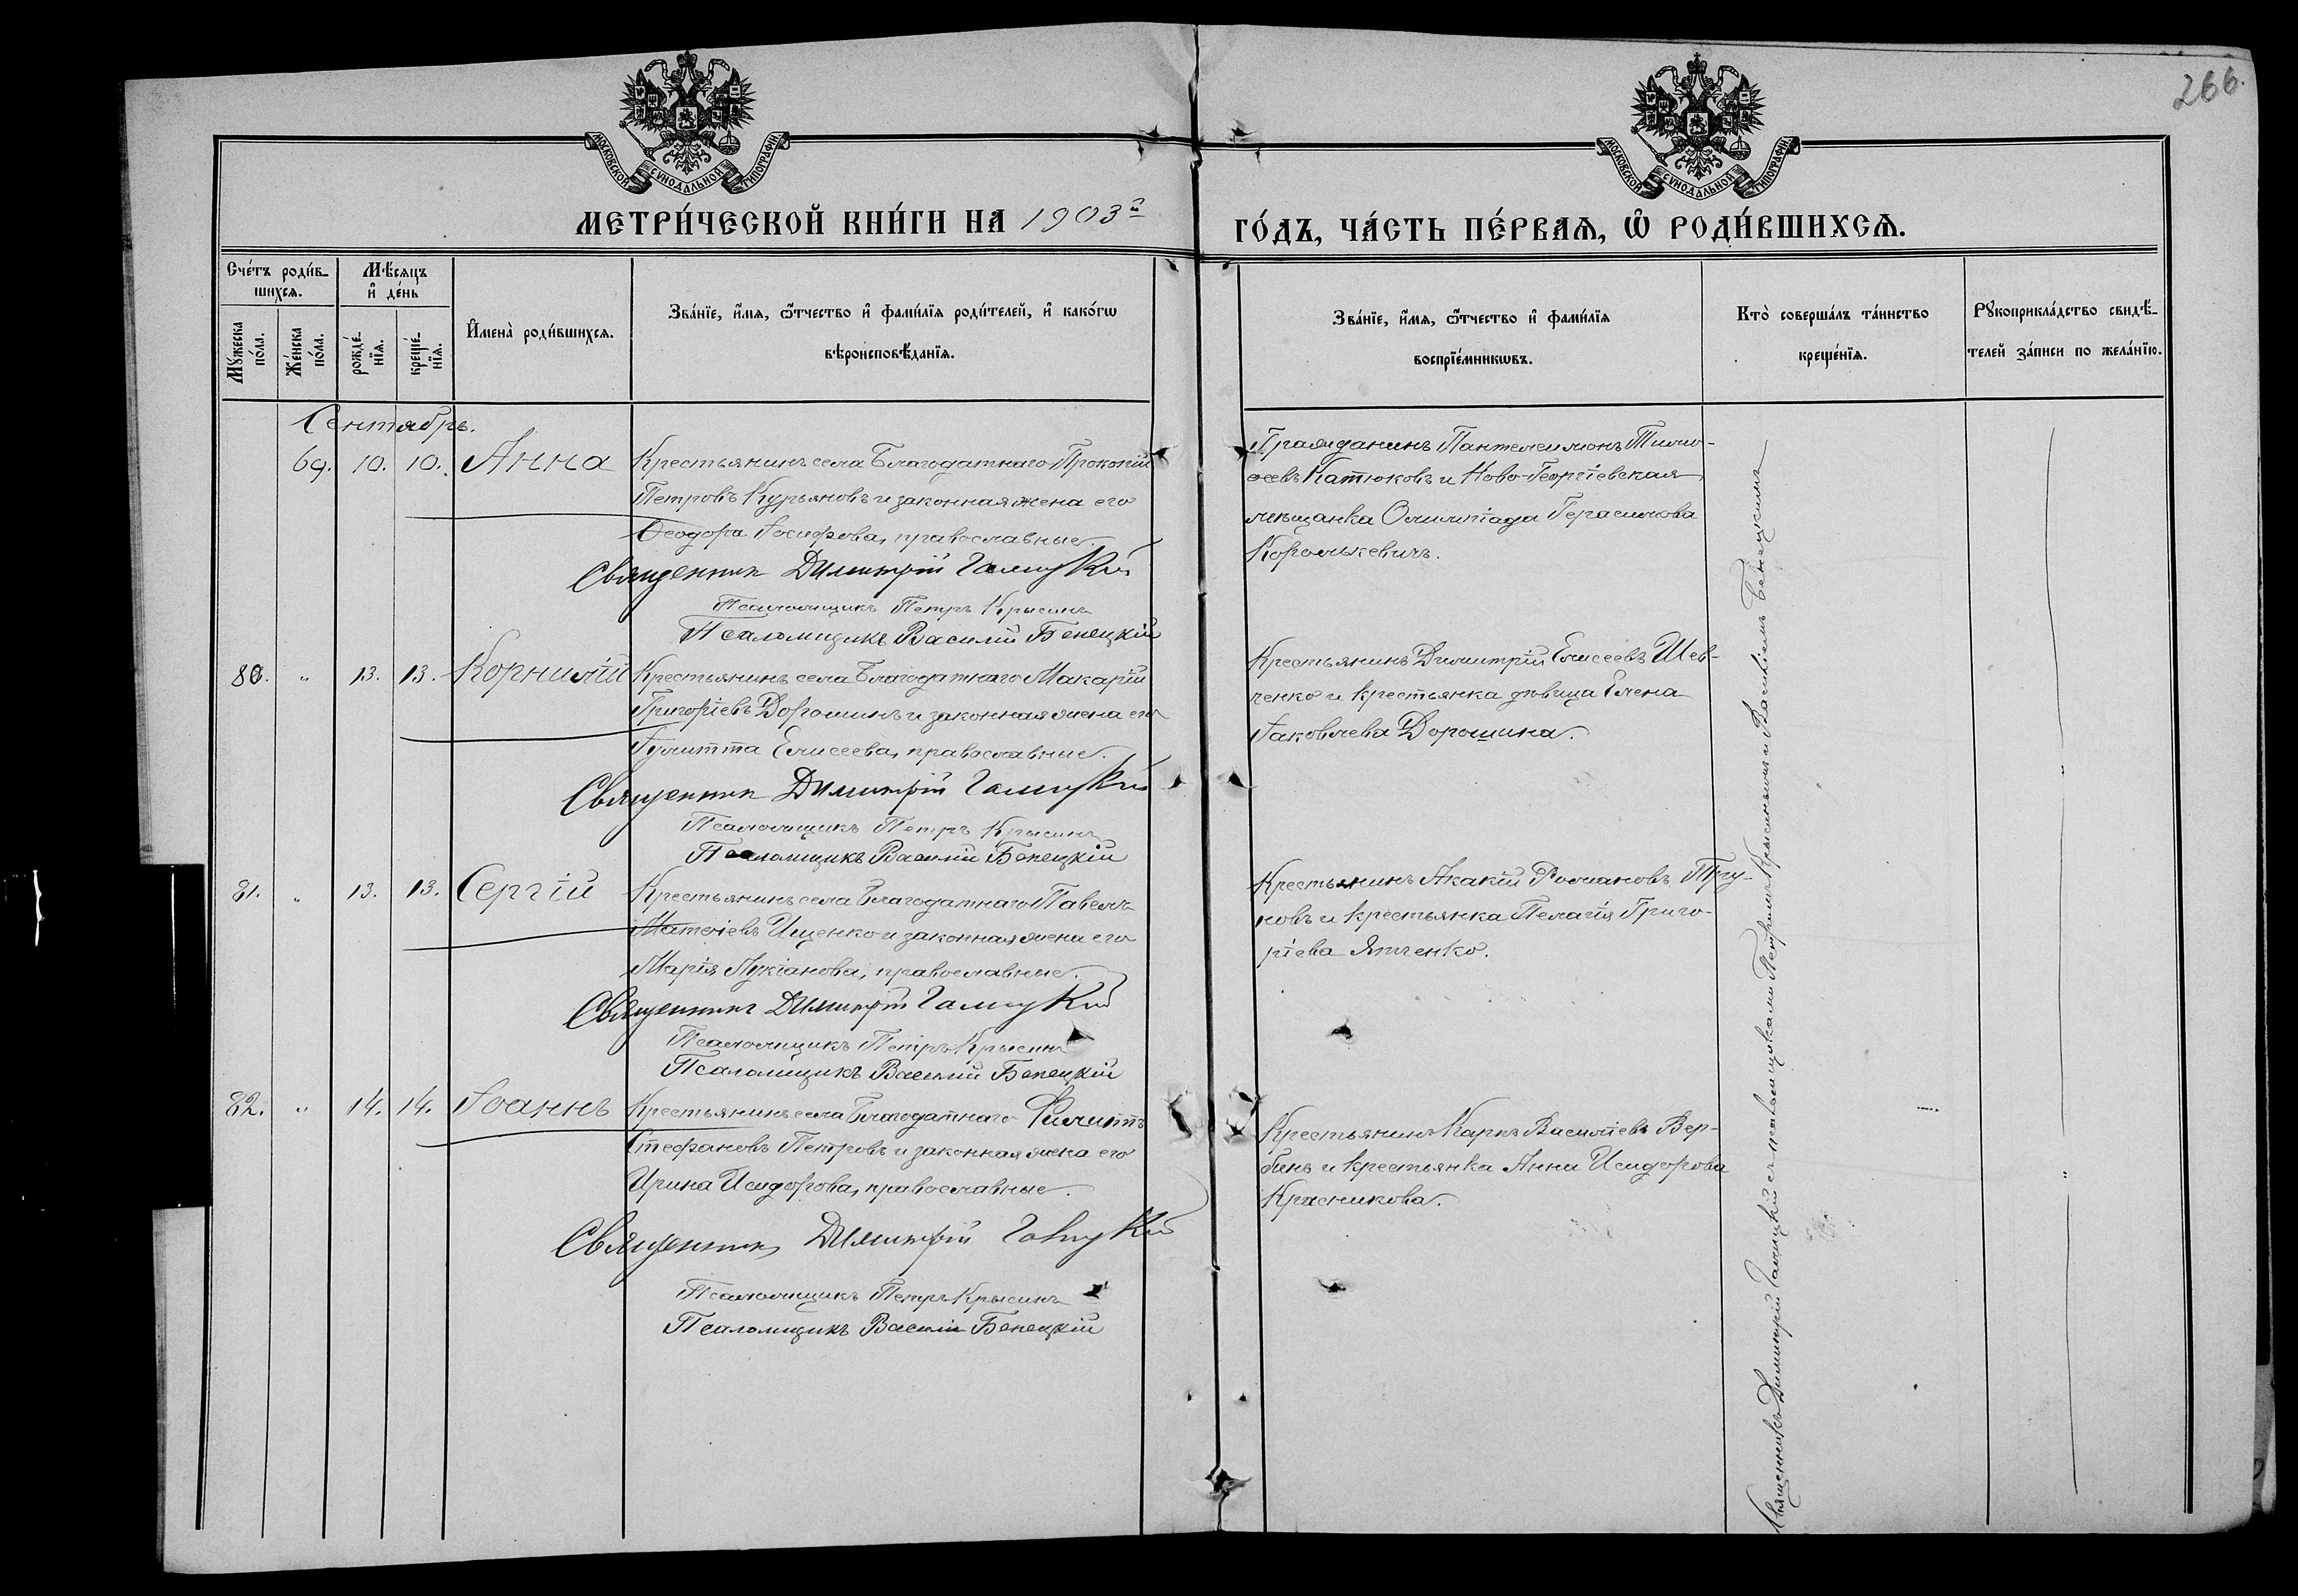 266.
МОСКОВСКОЙ СѴНОДАЛЬНОЙ ТИПОГРАФІИ.
МОСКОВСКОЙ СѴНОДАЛЬНОЙ ТИПОГРАФІИ.
МЕТРИ́ЧЕСКОЙ КНИ́ГИ НА 1903й
ГО́ДЪ, ЧА́СТЬ ПЕ́РВАѦ, Ѡ҆ РОДИ́ВШИХСѦ.
Сче́тъ роди́в-
шихсѧ.
Мꙋ́жеска
по́ла.
Же́нска
по́ла.
Мѣ́сяцъ
и҆ де́нь
рожде́-
нїѧ.
креще́-
нїѧ.
И҆мена̀ роди́вшихсѧ.
Зва́нїе, и҆́мѧ, ѻ҆́тчество и҆ фами́лїѧ роди́телей, и҆ како́гѡ
вѣроисповѣ́данїѧ.
Зва́нїе, и҆́мѧ, ѻ҆́тчество и҆ фами́лїѧ
воспрїе́мникѡвъ.
Кто̀ соверша́лъ та́инство
креще́нїѧ.
Рꙋкоприкла́дство свидѣ́-
телей за́писи по жела́нїю.
Сентябрь.
69. 10. 10. Анна
Крестьянинъ села Благодатнаго Прокопій
Петровъ Курьяновъ и законная жена его
Ѳеодора Іосифова, православные.
Священник Димитрій Галицкій
Псаломщикъ Петръ Крысинъ
Псаломщикъ Василій Бенецкій
Гражданинъ Пантелеимонъ Тимо-
ѳеевъ Катюковъ и Ново-Георгіевская
мѣщанка Олимпіада Герасимова
Королькевичъ.
80. " 13. 13. Корнилій
Крестьянинъ села Благодатнаго Макарій
Григоріевъ Дорошинъ и законная жена его
Іулитта Елисеева, православные.
Священник Димитрій Галицкій
Псаломщикъ Петръ Крысинъ
Псаломщикъ Василій Бенецкій
Крестьянинъ Димитрій Елисеевъ Шев-
ченко и крестьянка дѣвица Елена
Іаковлева Дорошина.
81. " 13. 13. Сергій
Крестьянинъ села Благодатнаго Павелъ
Матѳіевъ Ищенко и законная жена его
Марія Лукіанова, православные.
Священник Димитрій Галицкій
Псаломщикъ Петръ Крысинъ
Псаломщикъ Василій Бенецкій
Крестьянинъ Акакій Романовъ Тру-
новъ и крестьянка Пелагія Григо-
ріева Ятченко.
82. " 14. 14. Іоаннъ
Крестьянинъ села Благодатнаго Филиппъ
Стефановъ Петровъ и законная жена его
Ирина Исидорова, православные.
Священник Димитрій Галицкій
Псаломщикъ Петръ Крысинъ
Псаломщикъ Василій Бенецкій
Крестьянинъ Карпъ Васильевъ Вер-
бинъ и крестьянка Анна Исидорова
Красникова.
Священникъ Димитрій Галицкій съ псаломщиками Петромъ Крысинымъ и Василіемъ Бенецкимъ